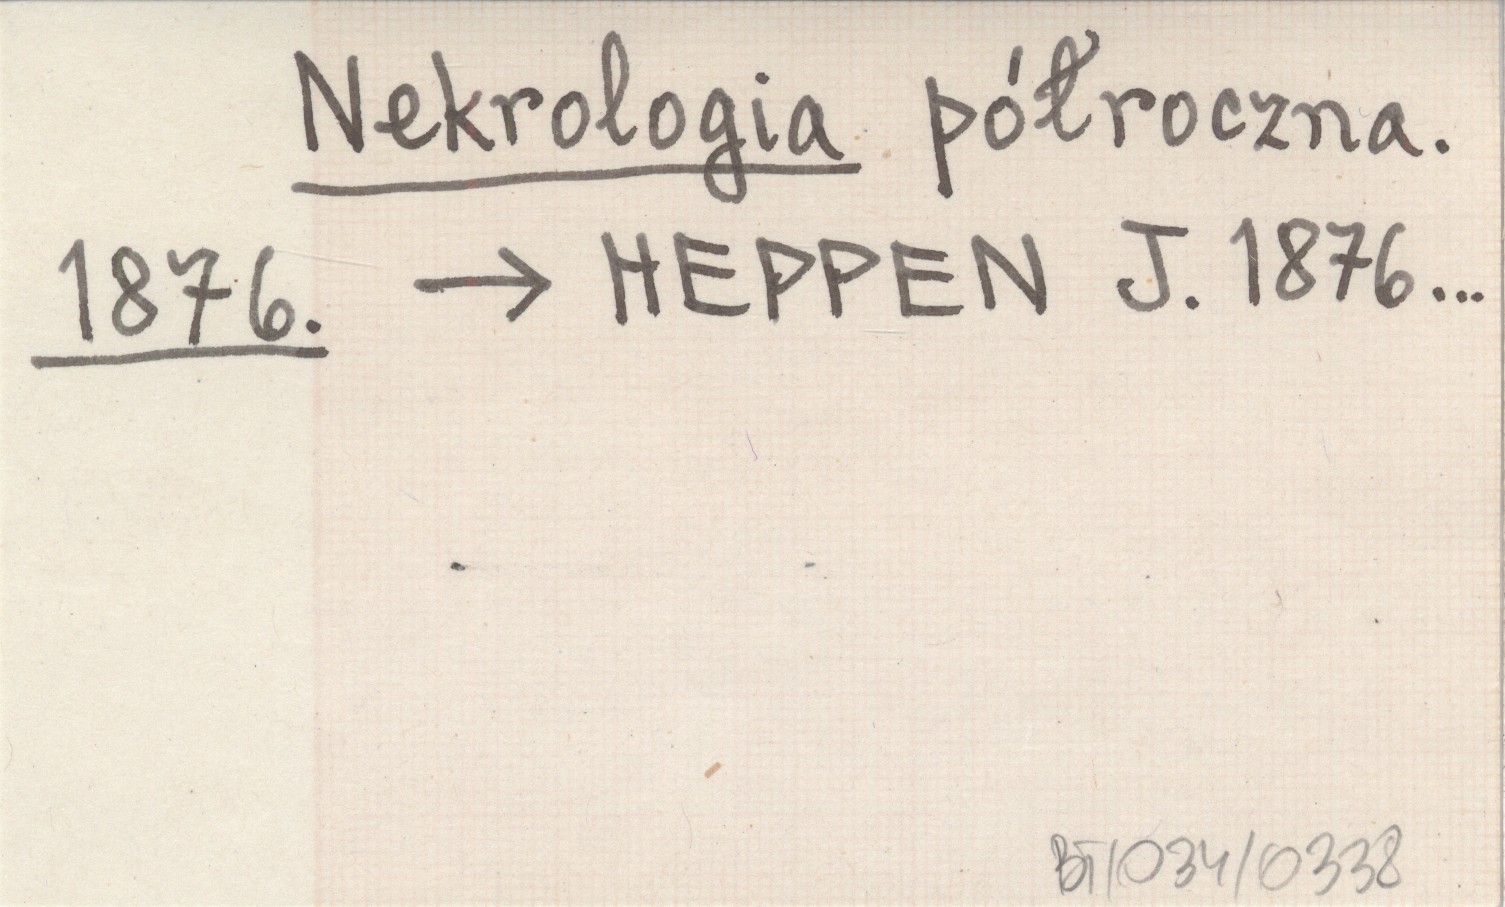 Nekrologia półroczna.
1876. → HEPPEN J. 1876...
BT/034/0338